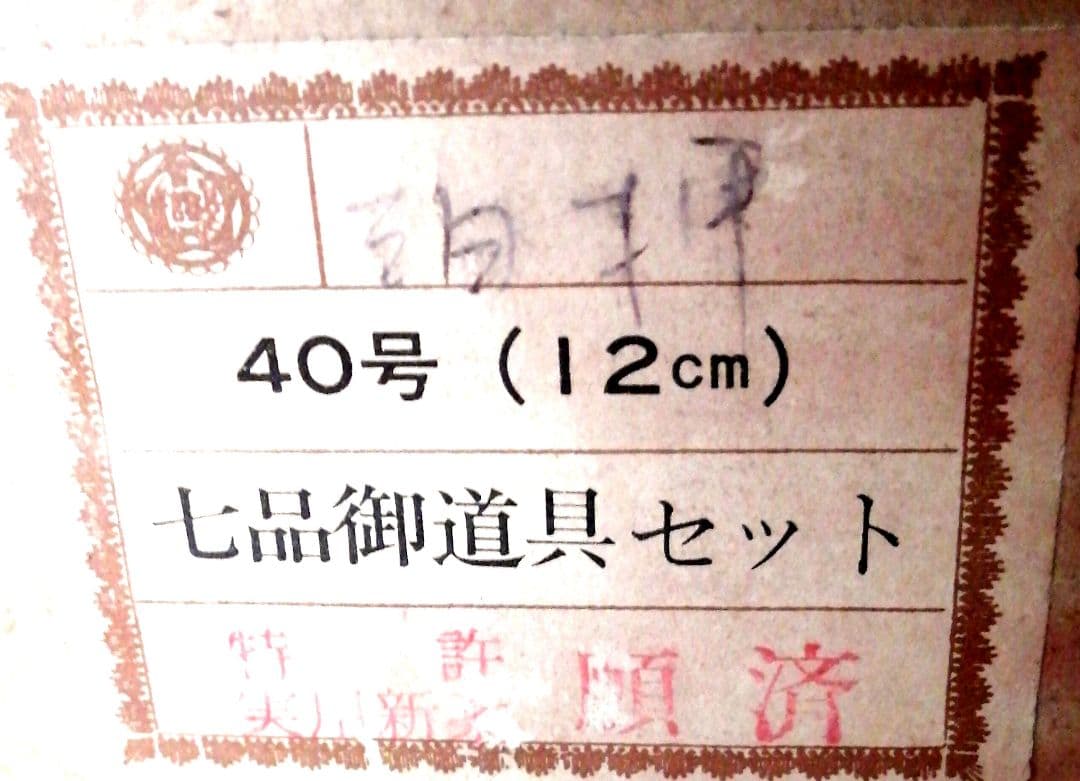 40号(12cm)
七品御道具セット
特許
実用新案
願済